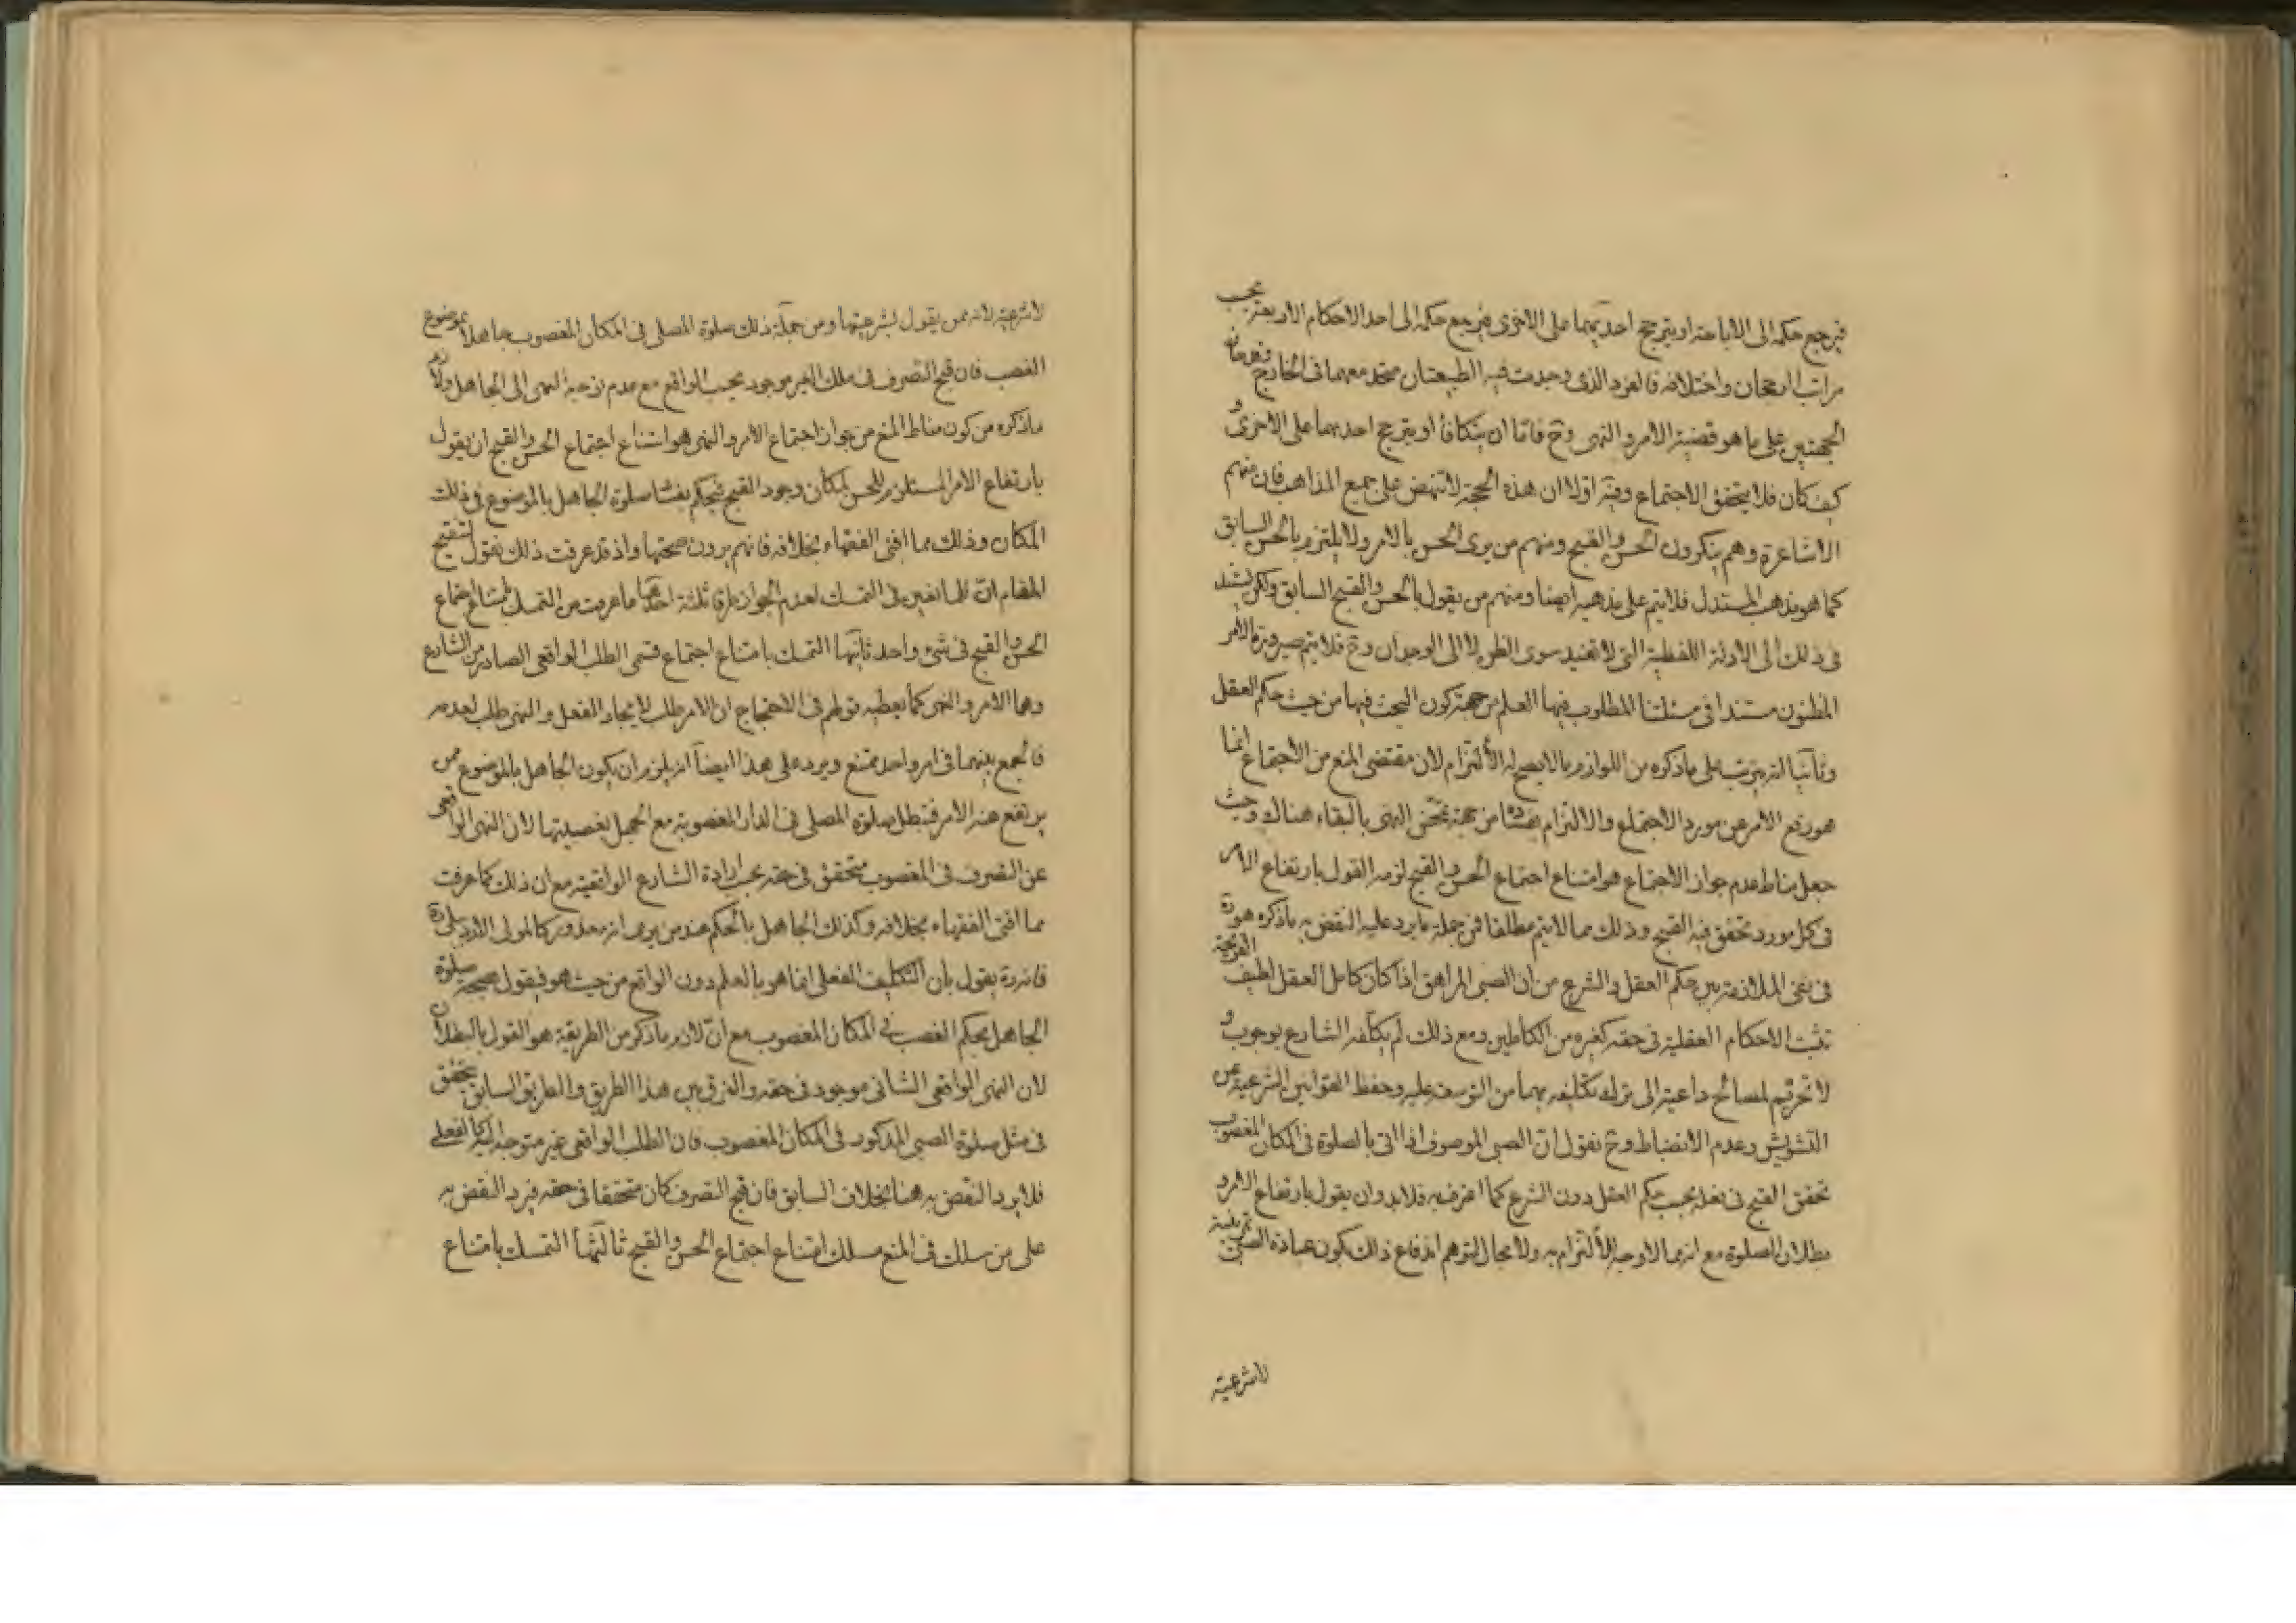 فيرجع حكمه الى الاباحة او يترجح احديهما على الاخرى فيرجع حكمه الى احد الاحكام الاربعة بحسب
مراتب الرجحان واختلافه فالفرد الذى وجدت فيه الطبيعتان متحد معهما فى الخارج
الجهتين على ما هو قضية الامر والنهى وح فامّا ان يتكافأ او يترجح احديهما على الاخرى و
كيف كان فلا يتحقق الاجتماع وفيه اولا ان هذه الحجة لا تنهض على جميع المذاهب فان منهم
الاشاعرة وهم ينكرون الحسن والقبح ومنهم من يرى الحسن بالامر ولا يلتزم بالحسن السابق
كما هو مذهب المستدل فلا يتم على مذهبه ايضا ومنهم من يقول بالحسن والقبح السابق ولكن يستند
فى ذلك الى الادلة اللفظية التى لا تفيد سوى الظن لا الى الوجدان وح فلا يتم صيرورة الامر
المظنون مستندا فى مسئلتنا المطلوب فيها العلم من جهة كون البحث فيها من حيث حكم العقل
وثانيا انه يترتب على ما ذكره من اللوازم ما لا يصح له الألتزام لان مقتضى المنع من الاجتماع انما
هو رفع الامر عن مورد الاجتماع والالتزام بفساده من جهة تمحّض النهى بالبقاء هناك وحيث
جعل مناط عدم جواز الاجتماع هو امتناع اجتماع الحسن والقبح لزمه القول بارتفاع الامر
فى كل مورد تحقق فيه القبح وذلك مما لا يتم مطلقا فمن جملة ما يرد عليه النقض به ما ذكره هو ره
فى نفى الملازمة بين حكم العقل والشرع من ان الصبى المراهق اذا كان كامل العقل لطيف القريحة
تثبت الاحكام العقلية فى حقه كغيره من الكاملين ومع ذلك لم يكلّفه الشارع بوجوب و
لا تحريم لمصالح داعية الى ترك تكليفه بهما من التوسعة عليه وحفظ القوانين الشرعية عن
التشويش وعدم الانضباط وح نقول انّ الصبى الموصوف اذا اتى بالصلوة فى المكان المغصوب
تحقق القبح فى فعله بحسب حكم العقل دون الشرع كما اعترف به فلابد وان يقول بارتفاع الامر و
بطلان الصلوة مع انه مما لا وجه للألتزام به ولا مجال لتوهم اندفاع ذلك بكون عبادة الصبى تمرينية
لا شرعية
لا شرعية لانه ممن يقول بشرعيتها ومن جملة ذلك صلوة المصلى فى المكان المغصوب جاهلا بموضوع
الغصب فان قبح التصرف فى ملك الغير موجود بحسب الواقع مع عدم توجه النهى الى الجاهل ولازم
ما ذكره من كون مناط المنع من جواز اجتماع الامر والنهى هو امتناع اجتماع الحسن والقبح ان يقول
بارتفاع الامر المستلزم للحسن لمكان وجود القبح فيحكم بفساد صلوة الجاهل بالموضوع فى ذلك
المكان وذلك مما افتى الفقهاء بخلافه فانهم يرون صحتها واذ قد عرفت ذلك نقول لتنقيح
المقام انّ للمانعين فى التمسك لعدم الجواز طرقا ثلثة احدها ما عرفت من التمسك بامتناع اجتماع
الحسن والقبح فى شئ واحد ثانيها التمسك بامتناع اجتماع قسمى الطلب الواقعى الصادر من الشارع
وهما الامر والنهى كما يعطيه قولهم فى الاحتجاج ان الامر طلب لايجاد الفعل والنهى طلب لعدمه
فالجمع بينهما فى امر واحد ممتنع ويرد على هذا ايضا انه يلزم ان يكون الجاهل بالموضوع ممن
يرتفع عنه الامر فتبطل صلوة المصلى فى الدار المغصوبة مع الجهل بغصبيتها لان النهى الواقعى
عن التصرف فى المغصوب متحقق فى حقه بحسب ارادة الشارع الواقعية مع ان ذلك كما عرفت
مما افتى الفقهاء بخلافه وكذلك الجاهل بالحكم عند من يرى انه معذور كالمولى الاردبيلى ره
فانه ره يقول بان التكليف الفعلى انما هو بالعلم دون الواقع من حيث هو فيقول بصحة صلوة
الجاهل بحكم الغصب فى المكان المغصوب مع انّ لازم ما ذكر من الطريقة هو القول بالبطلان
لان النهى الواقعى الشانى موجود فى حقه والفرق بين هذا الطريق والطريق السابق يتحقق
فى مثل صلوة الصبى المذكور فى المكان المغصوب فان الطلب الواقعى غير متوجه اليه كالفعلى
فلا يرد النقض به هنا بخلاف السابق فان قبح التصرف كان متحققا فى حقه فيرد النقض به
على من سلك فى المنع مسلك امتناع اجتماع الحسن والقبح ثالثها التمسك بامتناع